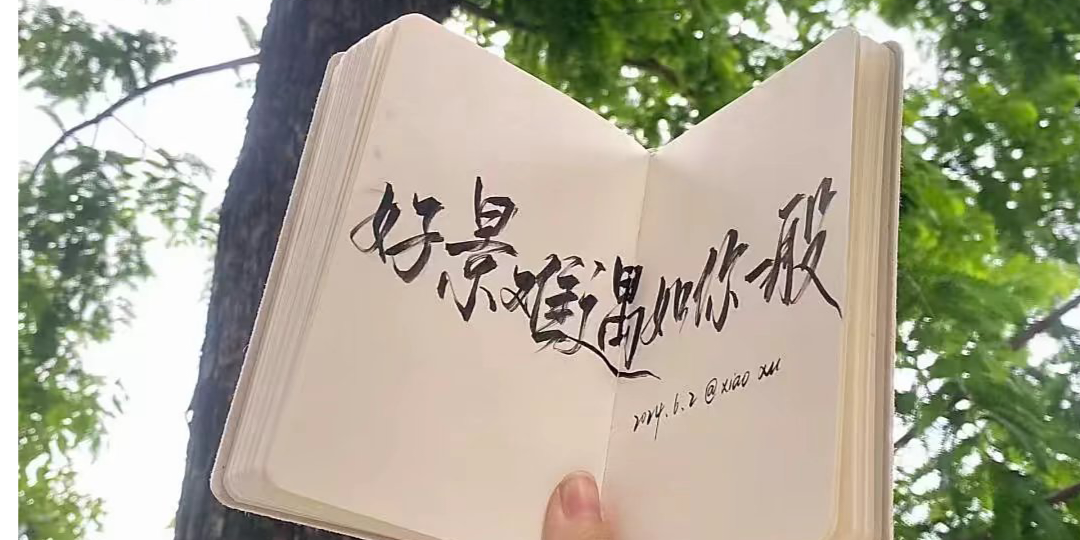 好景难遇如你一般
2024.6.2 @xiao xu